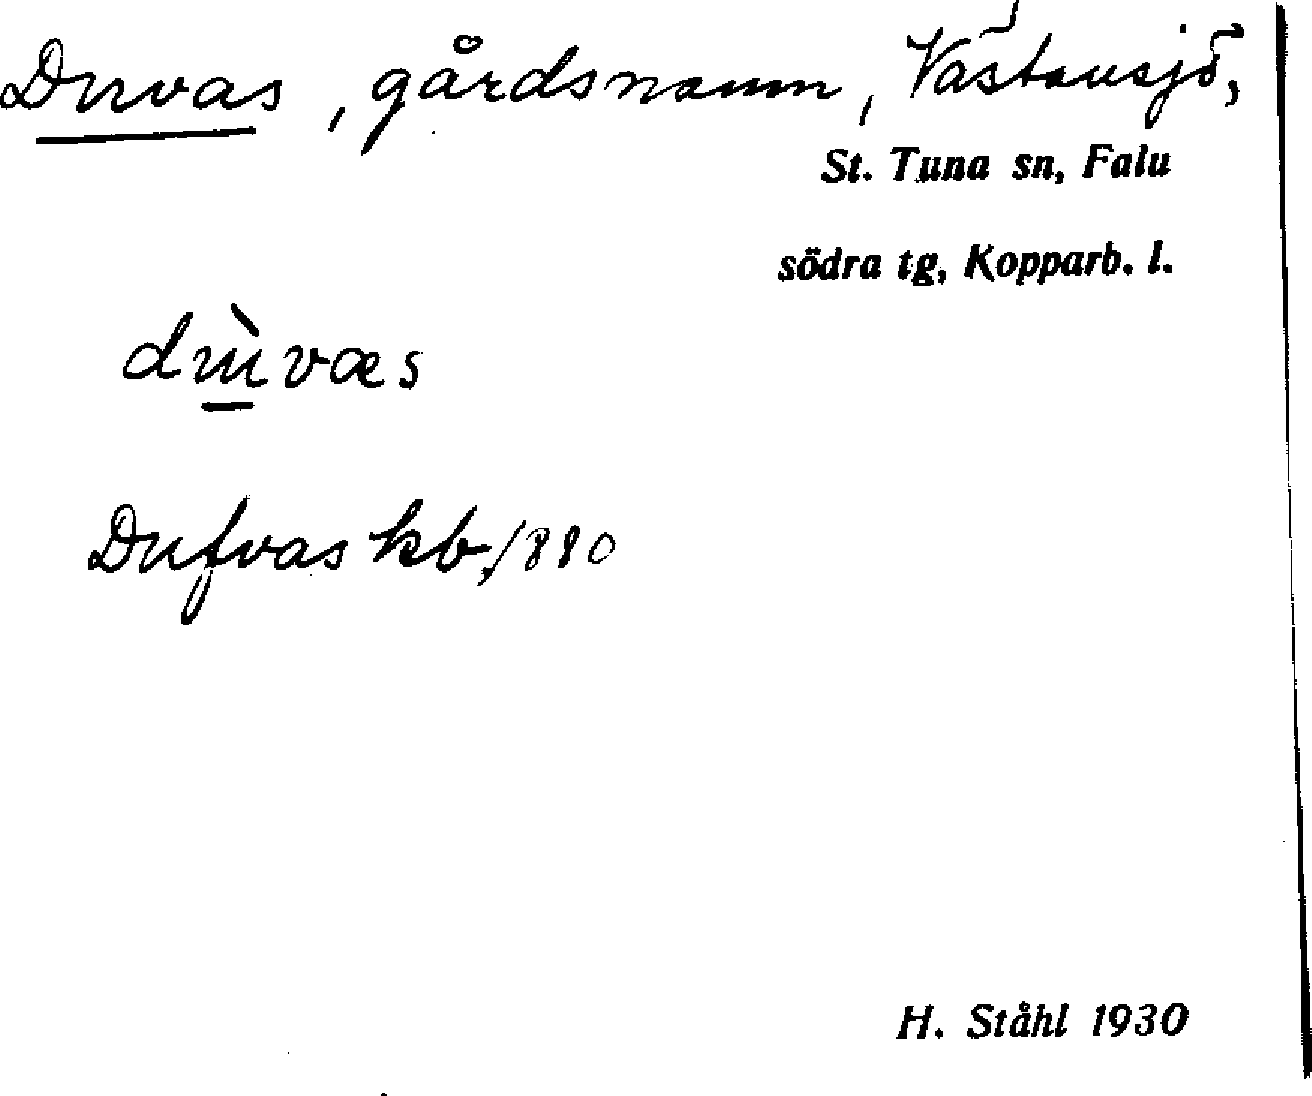 Duvas, gårdsnamn, Västansjö,
St. Tuna sn, Falu
södra tg, Kopparb. l.
dùvas
Dufvas kb. 1880
H. Ståhl 1930